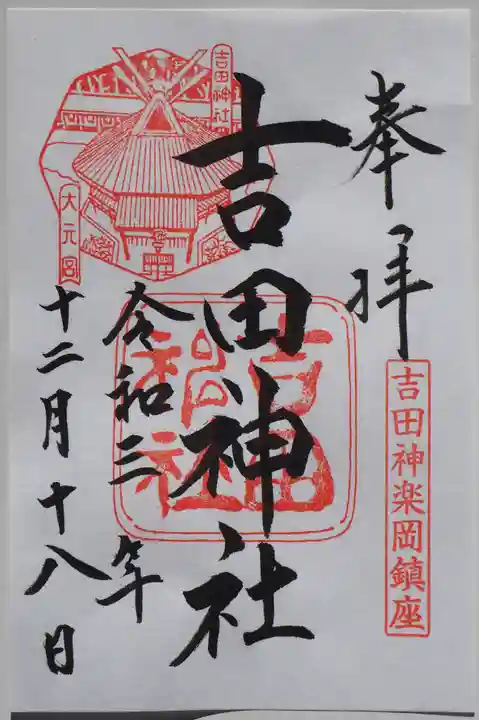 奉拝
吉田神楽岡鎮座
吉田神社
吉田神社
吉田神社
大元宮
令和三年
十二月十八日